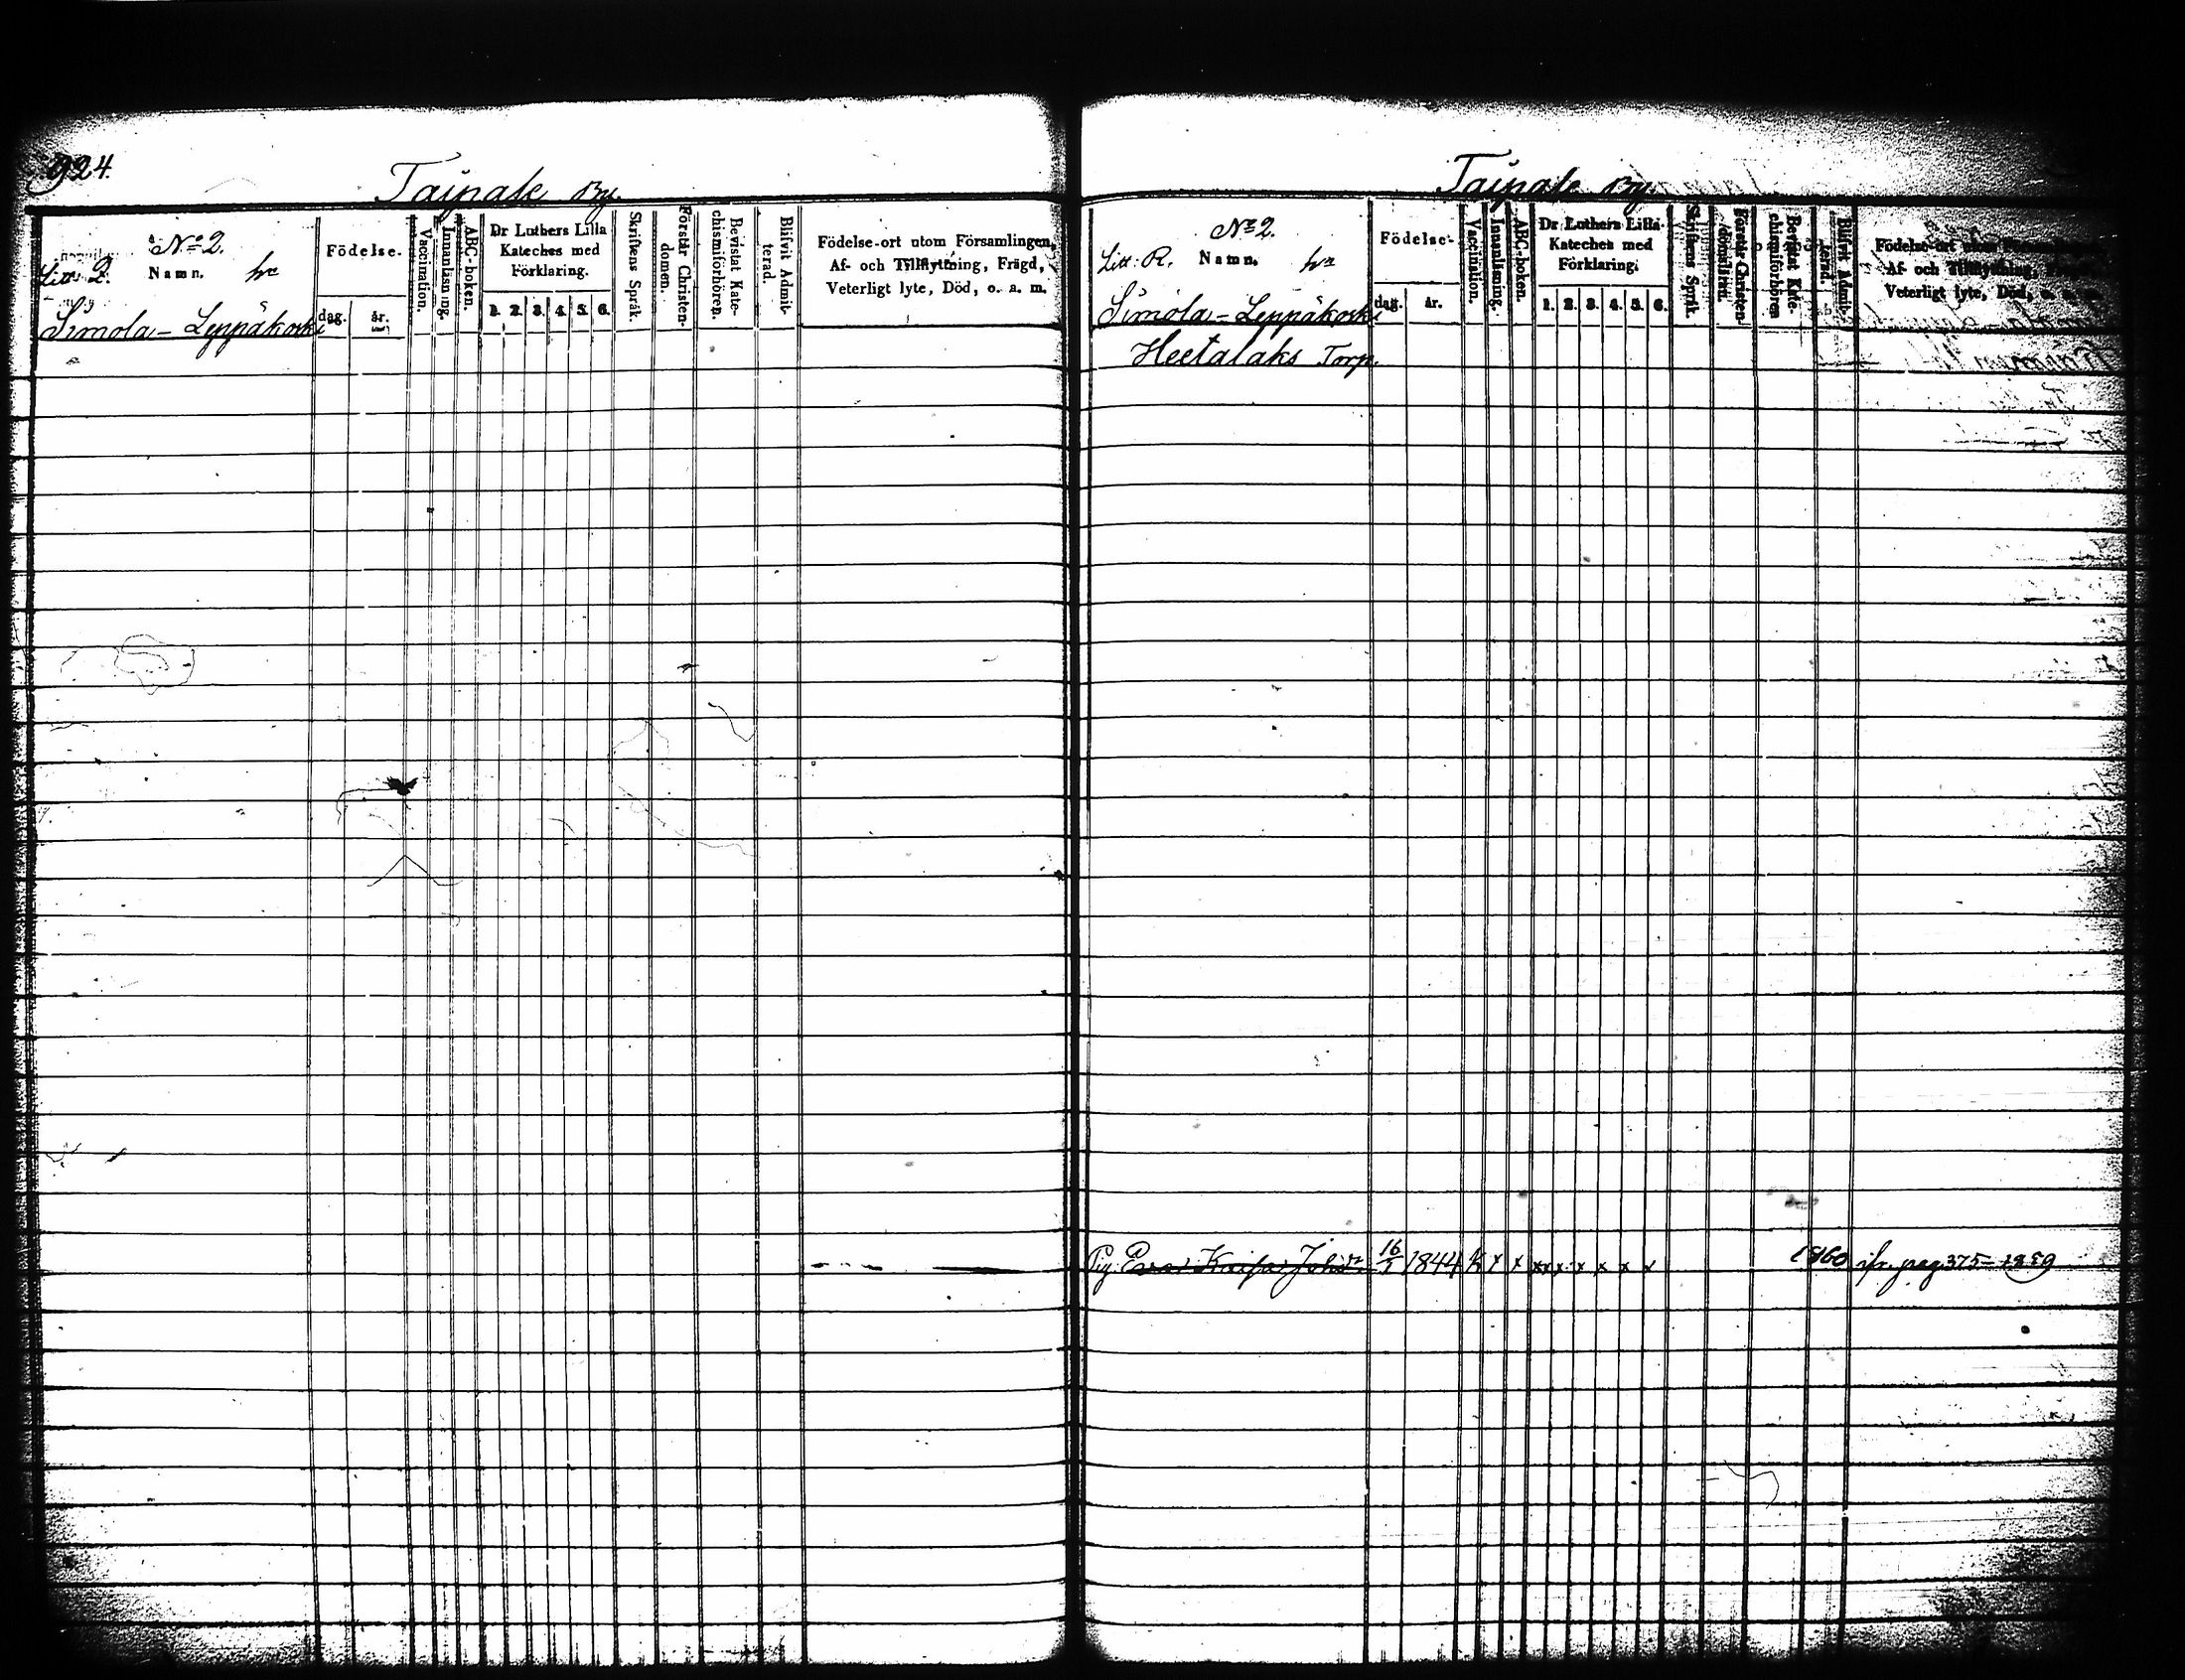 924.
Taipale By.
No 2.
Litt: Q. Namn. hn
Simola-Leppäkoski
Födelse.
dag. år.
Vaccination.
Innanläsning.
ABC-boken.
Dr Luthers Lilla
Kateches med
Förklaring.
1. 2. 3. 4. 5. 6.
Skriftens Språk.
Förstår Christen-
domen.
Bevistat Kate-
chismiförhören.
Blifvit Admit-
terad.
Födelse-ort utom Församlingen,
Af- och Tillflyttning, Frägd,
Veterligt lyte, Död, o. a. m.
Taipale By.
No 2.
Litt: R. Namn. hn
Simola-Leppäkoski
Heetalaks Torp.
Födelse-
dag. år.
Vaccination.
Innanläsning.
ABC-boken.
Dr Luthers Lilla
Kateches med
Förklaring.
1. 2. 3. 4. 5. 6.
Skriftens Språk.
Förstår Christen-
domsläran.
Bevistat Kate-
chismiförhören
Blifvit Admit-
terad.
Födelse-ort utom
Af- och Tillflyttning,
Veterligt lyte, Död, o. a. m.
Pig. Eva Kaisa Johsdr 16 1844 x x x x x x x x 1860 ifr. pag. 375-1859